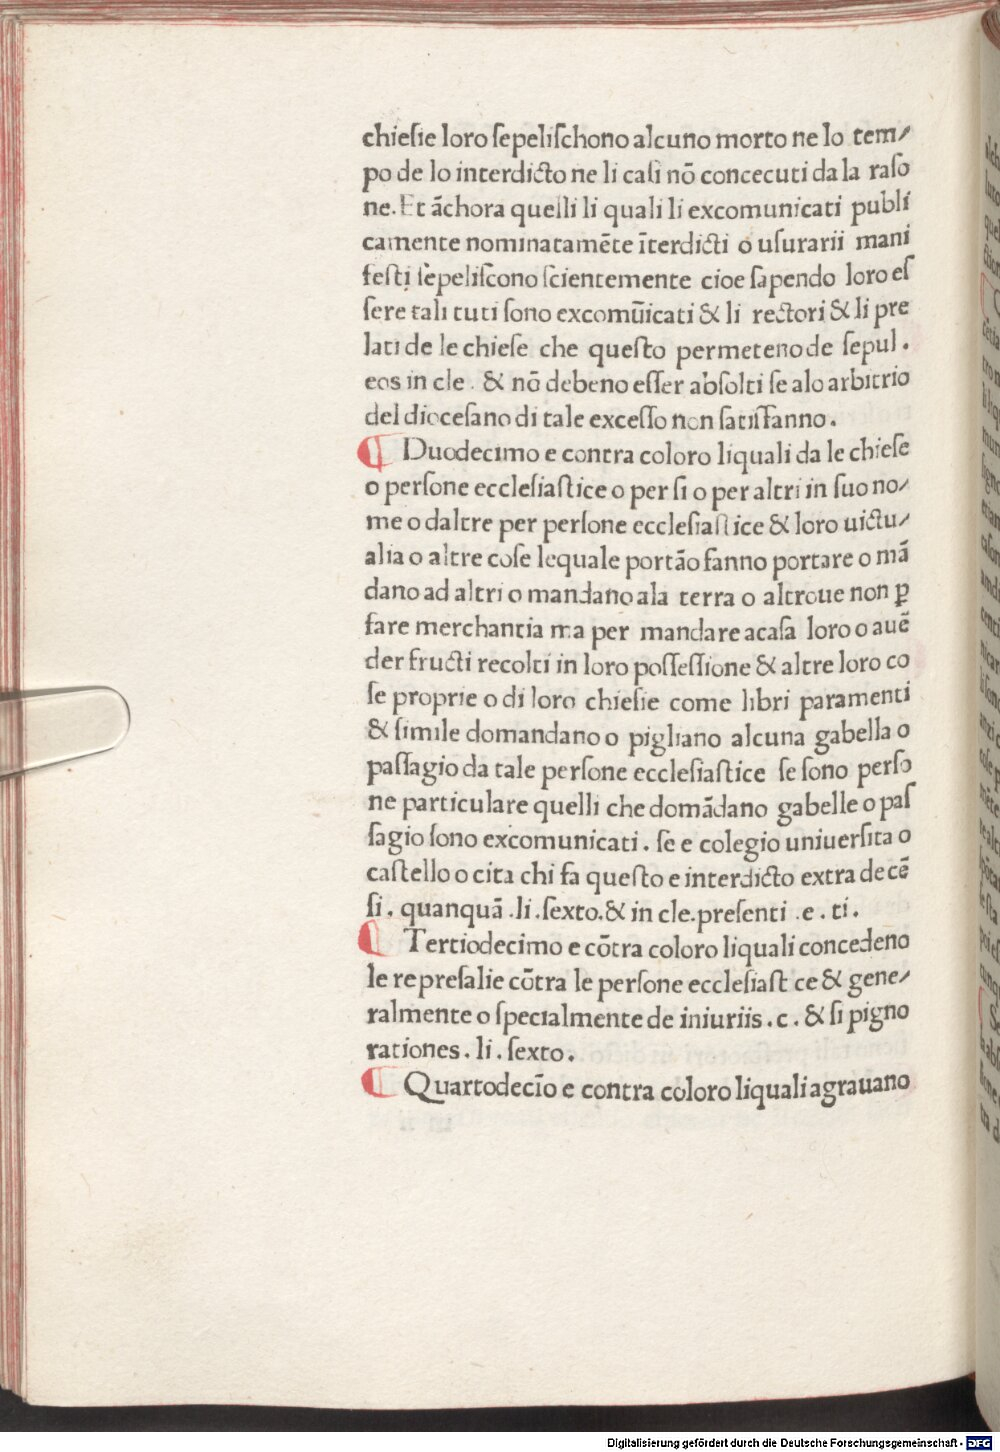 chieſie loro ſepeliſchono alcuno morto ne lo tem⸗
po de lo interdicto ne li caſi nō concecuti da la raſo
ne. Et āchora quelli li quali li excomunicati publi
camente nominatamēte īterdicti o uſurarii mani
feſti ſepeliſcono ſcientemente cioe ſapendo loro eſ
ſere tali tuti ſono excomūicati & li rectori & li pre
lati de le chieſe che queſto permeteno de ſepul .
eos in cle . & nō debeno eſſer abſolti ſe alo arbitrio
del dioceſano di tale exceſſo non ſatiſfanno .
¶ Duodecimo e contra coloro liquali da le chieſe
o perſone eccleſiaſtice o per ſi o per altri in ſuo no⸗
me o daltre per perſone eccleſiaſtice & loro uictu⸗
alia o altre coſe lequale portāo fanno portare o mā
dano ad altri o mandano ala terra o altroue non ꝑ
fare merchantia ma per mandare acaſa loro o auē
der fructi recolti in loro poſſeſſione & altre loro co
ſe proprie o di loro chieſie come libri paramenti
& ſimile domandano o pigliano alcuna gabella o
paſſagio da tale perſone eccleſiaſtice ſe ſono perſo
ne particulare quelli che domādano gabelle o paſ
ſagio ſono excomunicati . ſe e colegio uniuerſita o
caſtello o cita chi fa queſto e interdicto extra de cē
ſi . quanquā .li .ſexto.& in cle.preſenti .e . ti .
¶ Tertiodecimo e cōtra coloro liquali concedeno
le repreſalie cōtra le perſone eccleſiaſt ce & gene⸗
ralmente o ſpecialmente de iniuriis . c . & ſi pigno
rationes . li . ſexto .
¶ Quartodecīo e contra coloro liquali agrauano
Digitalisierung gefördert durch die Deutsche Forschungsgemeinschaft - DFG